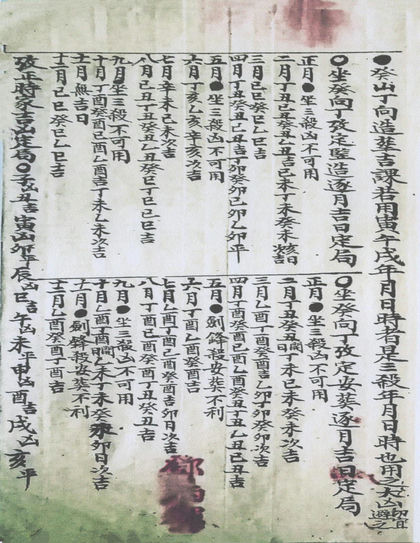 ●癸山丁向造葬吉課若用寅午戌年月日時者是三殺年月日時也用之大凶卽宜避之
○坐癸向丁改定監造逐月吉日定局
正月●坐三殺凶不可用
二月丁丑乙丑癸丑己丑吉己未丁未癸未次吉
三月己巳癸巳乙巳吉
四月丁丑癸丑己丑吉丁卯癸卯己卯乙卯平
五月●坐三殺凶不可用
六月丁亥乙亥辛亥次吉
七月辛未己未次吉
八月己丑丁丑癸丑乙丑癸巳丁巳己巳吉
九月●坐三殺不可用
十月丁酉癸酉己酉乙酉吉丁未乙未次吉
十一月無吉日
十二月己巳癸巳乙巳吉
○坐癸向丁改定安葬逐月吉日定局
正月●坐三殺凶不可用
二月丁丑癸丑丁未己未癸未次吉
三月乙酉丁酉癸酉吉乙卯癸卯次吉
四月丁酉己酉癸酉乙酉吉丁丑乙丑己丑吉
五月●劍鋒殺安葬不利
六月丁酉乙酉癸酉吉
七月丁酉乙酉己酉癸酉吉卯日次吉
八月丁酉己酉癸酉丁丑癸丑吉
九月●坐三殺凶不可用
十月丁酉癸酉乙未丁未癸未卯日次吉
十一月●劍鋒殺安葬不利
十二月乙酉癸酉丁酉吉
改正時家吉凶定局○子凶丑吉寅凶卯平辰凶巳吉午凶未平申凶酉吉戌凶亥平